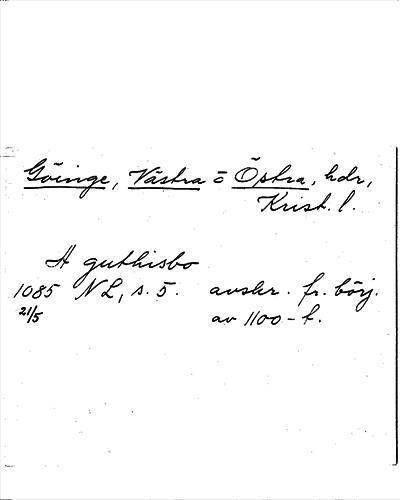 Göinge, Västra o Östra, hdr,
Krist. l.
H guthisbo
1085 NL, s. 5. avskr. fr. börj.
21/5 av 1100-t.